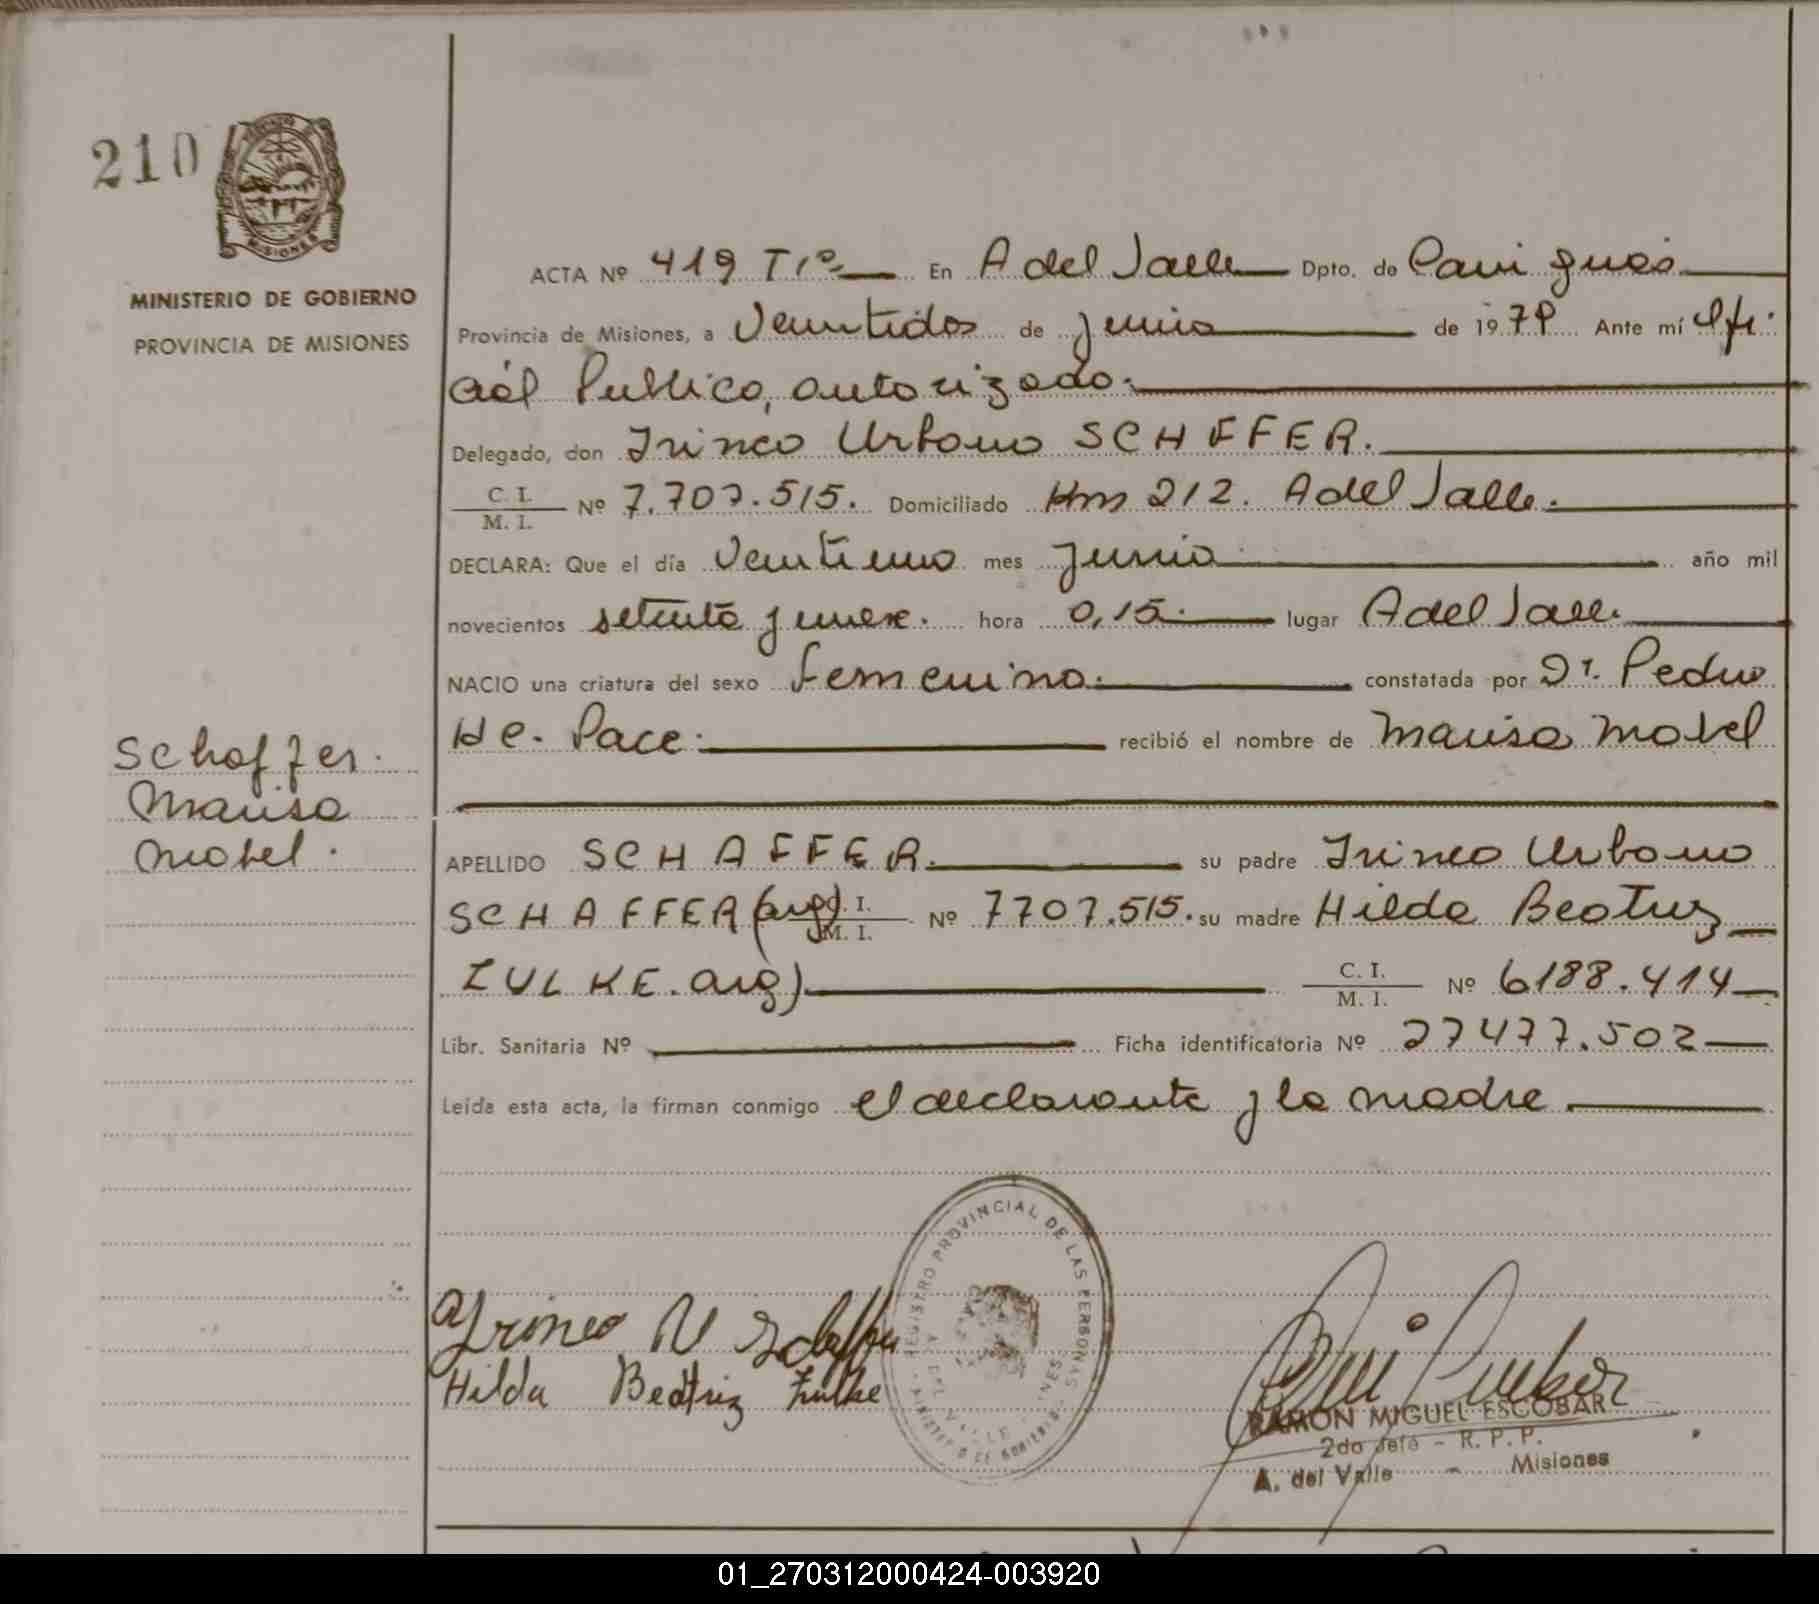 210
MISIONES
MINISTERIO DE GOBIERNO
PROVINCIA DE MISIONES
ACTA Nº 419 Tº En A del Valle Dpto. de Cainguás
Provincia de Misiones, a Veintidos de junio de 1979 Ante mí Ofi
cial Publico, autorizado.
Delegado, don Irineo Urbano SCHFFER.
C. I.
M. I. Nº 7.707.515. Domiciliado Km 212. A del Valle.
DECLARA: Que el día Veintiuno mes Junio año mil
novecientos setenta y nueve. hora 0,15. lugar A del Valle.
NACIO una criatura del sexo femenino. constatada por Dr. Pedro
He. Pace. recibió el nombre de Marisa Mabel
Schaffer.
Marisa
Mabel.
APELLIDO SCHAFFER. su padre Irineo Urbano
SCHAFFER (arg) C. I. M. I. Nº 7707.515. su madre Hilda Beatriz
ZULKE. arg) C. I. M. I. Nº 6188.414
Libr. Sanitaria Nº Ficha identificatoria Nº 27477.502
Leída esta acta, la firman conmigo el declarante y la madre
REGISTRO PROVINCIAL DE LAS PERSONAS
A. DEL VALLE
MINISTERIO DE GOBIERNO
Irineo U Schaffer
Hilda Beatriz Zulke
RAMON MIGUEL ESCOBAR
2do Jefe - R. P. P.
A. del Valle - Misiones
01_270312000424-003920